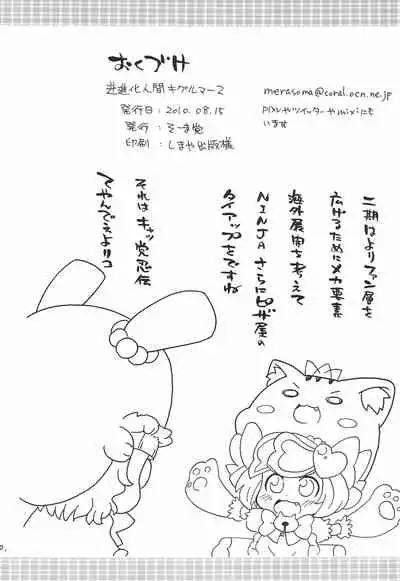 おくづけ
逆進化人間キグルマーZ
発行日：2010.08.15
発行：そーま党
印刷：しまや出版様
merasoma@coral.ocn.ne.jp
pixivやツイッターやmixiにも
います
二期はよりファン層を
広げるためにメカ要素
海外展開も考えて
NINJAさらにピザ屋の
タイアップをですね
それはキャッ党忍伝
てやんでえよリコ